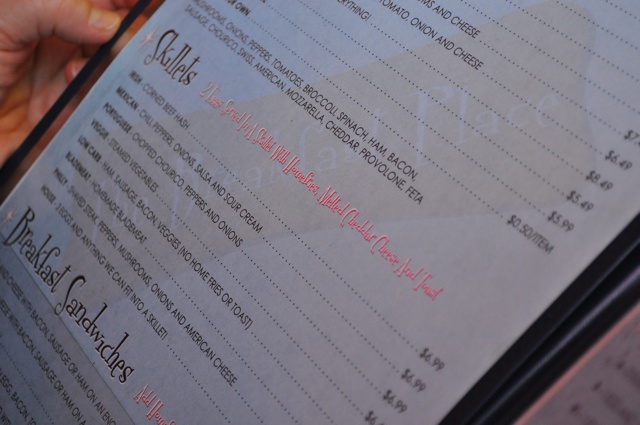 RS AND CHEESE
TOMATO, ONION AND CHEESE
VERYTHING!
OWN
MUSHROOMS, ONIONS, PEPPERS, TOMATOES, BROCCOLI, SPINACH, HAM, BACON,
SAUSAGE, CHOURICO, SWISS, AMERICAN, MOZZARELLA, CHEDDAR, PROVOLONE, FETA
$6.49
$8.49
$5.49
$5.99
$0.50/ITEM
Breakfast Place
Skillets
2 Eggs Served In A Skillet With Homefries, Melted Cheddar Cheese And Toast
IRISH: CORNED BEEF HASH
MEXICAN: CHILI, PEPPERS, ONIONS, SALSA AND SOUR CREAM
PORTUGUESE: CHOPPED CHOURICO, PEPPERS AND ONIONS
VEGGIE: STEAMED VEGETABLES
LOW CARB: HAM, SAUSAGE, BACON, VEGGIES (NO HOME FRIES OR TOAST)
BLASMEAT: HOMEMADE BLASMEAT
PHILLY: SHAVED STEAK, PEPPERS, MUSHROOMS, ONIONS AND AMERICAN CHEESE
HOUSE: 3 EGGS AND ANYTHING WE CAN FIT INTO A SKILLET!
$6.99
$6.99
$6.99
Breakfast Sandwiches
Add Home
CHEESE WITH BACON, SAUSAGE OR HAM ON AN ENG
CHEESE WITH BACON, SAUSAGE OR HAM ON A
EGG, BACON